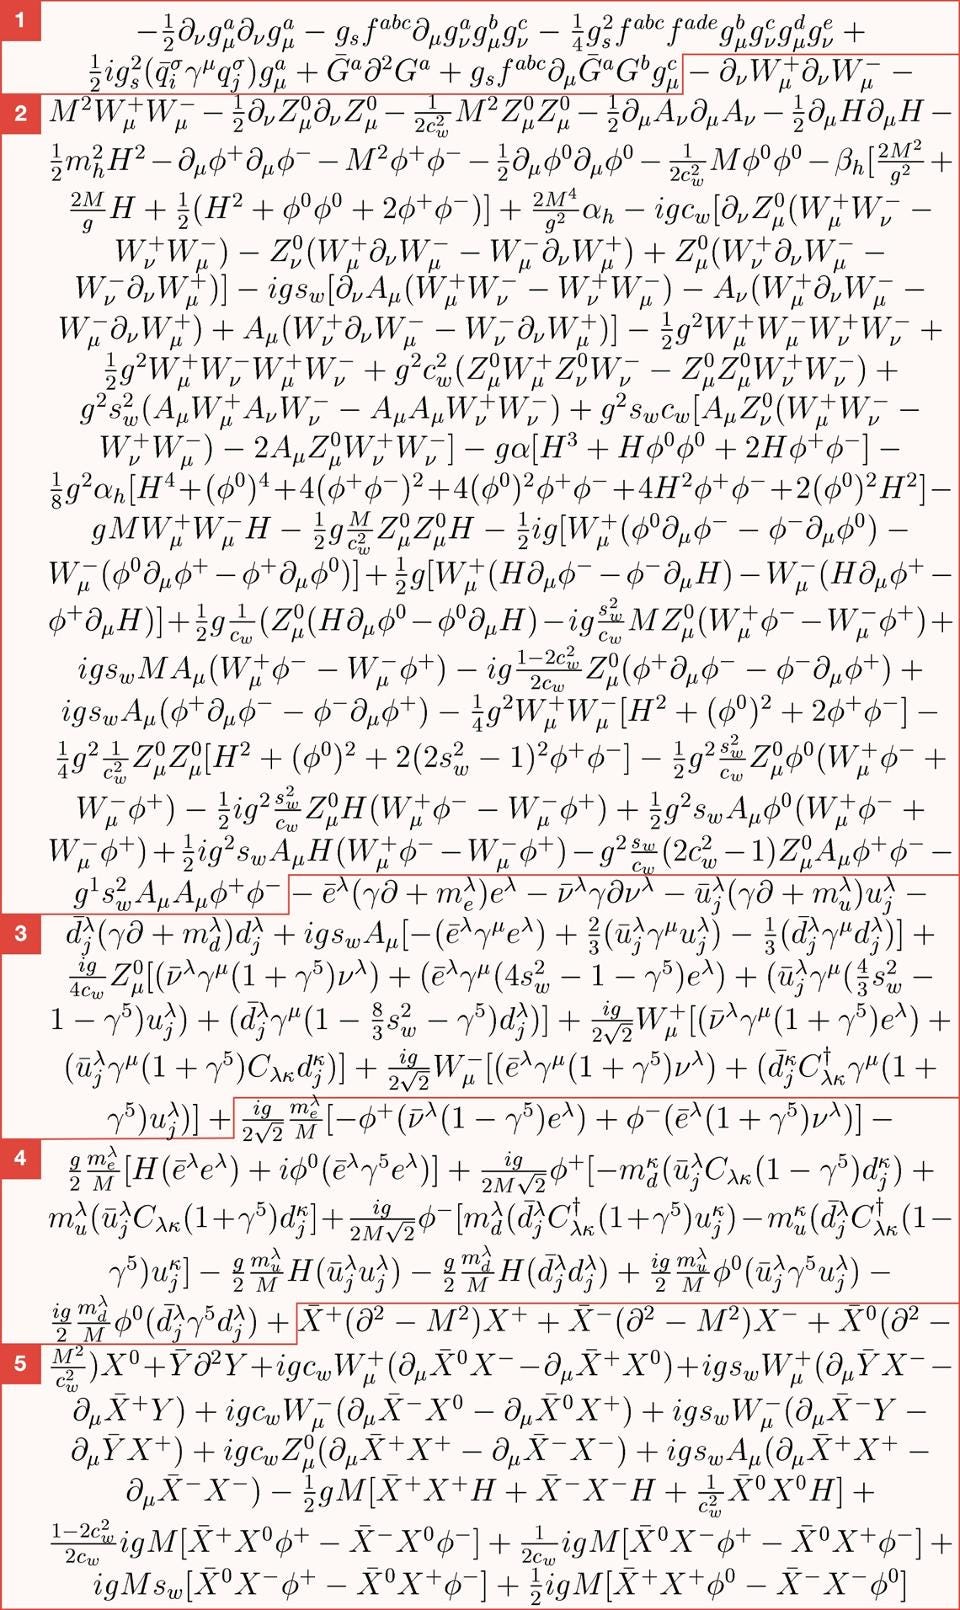 1
−½∂νg^a_μ∂νg^a_μ − g_s f^{abc}∂μg^a_νg^b_μg^c_ν − ¼g²_s f^{abc}f^{ade}g^b_μg^c_νg^d_μg^e_ν +
½ig²_s(q̄^σ_iγ^μq^σ_j)g^a_μ + Ḡ^a∂²G^a + g_s f^{abc}∂μḠ^aG^bg^c_μ − ∂νW^+_μ∂νW^−_μ −
2
M²W^+_μW^−_μ − ½∂νZ^0_μ∂νZ^0_μ − \frac{1}{2c²_w}M²Z^0_μZ^0_μ − ½∂μA_ν∂μA_ν − ½∂μH∂μH −
½m²_hH² − ∂μφ^+∂μφ^− − M²φ^+φ^− − ½∂μφ^0∂μφ^0 − \frac{1}{2c²_w}Mφ^0φ^0 − β_h[\frac{2M²}{g²} +
\frac{2M}{g}H + ½(H² + φ^0φ^0 + 2φ^+φ^−)] + \frac{2M⁴}{g²}α_h − igc_w[∂νZ^0_μ(W^+_μW^−_ν −
W^+_νW^−_μ) − Z^0_ν(W^+_μ∂νW^−_μ − W^−_μ∂νW^+_μ) + Z^0_μ(W^+_ν∂νW^−_μ −
W^−_ν∂νW^+_μ)] − igs_w[∂νA_μ(W^+_μW^−_ν − W^+_νW^−_μ) − A_ν(W^+_μ∂νW^−_μ −
W^−_μ∂νW^+_μ) + A_μ(W^+_ν∂νW^−_μ − W^−_ν∂νW^+_μ)] − ½g²W^+_μW^−_μW^+_νW^−_ν +
½g²W^+_μW^−_νW^+_μW^−_ν + g²c²_w(Z^0_μW^+_μZ^0_νW^−_ν − Z^0_μZ^0_μW^+_νW^−_ν) +
g²s²_w(A_μW^+_μA_νW^−_ν − A_μA_μW^+_νW^−_ν) + g²s_wc_w[A_μZ^0_ν(W^+_μW^−_ν −
W^+_νW^−_μ) − 2A_μZ^0_μW^+_νW^−_ν] − gα[H³ + Hφ^0φ^0 + 2Hφ^+φ^−] −
⅛g²α_h[H⁴+(φ^0)⁴+4(φ^+φ^−)²+4(φ^0)²φ^+φ^−+4H²φ^+φ^−+2(φ^0)²H²]−
gMW^+_μW^−_μH − ½g\frac{M}{c²_w}Z^0_μZ^0_μH − ½ig[W^+_μ(φ^0∂μφ^− − φ^−∂μφ^0) −
W^−_μ(φ^0∂μφ^+ − φ^+∂μφ^0)] + ½g[W^+_μ(H∂μφ^− − φ^−∂μH) − W^−_μ(H∂μφ^+ −
φ^+∂μH)] + ½g\frac{1}{c_w}(Z^0_μ(H∂μφ^0 − φ^0∂μH) − ig\frac{s²_w}{c_w}MZ^0_μ(W^+_μφ^− − W^−_μφ^+) +
igs_wMA_μ(W^+_μφ^− − W^−_μφ^+) − ig\frac{1−2c²_w}{2c_w}Z^0_μ(φ^+∂μφ^− − φ^−∂μφ^+) +
igs_wA_μ(φ^+∂μφ^− − φ^−∂μφ^+) − ¼g²W^+_μW^−_μ[H² + (φ^0)² + 2φ^+φ^−] −
¼g²\frac{1}{c²_w}Z^0_μZ^0_μ[H² + (φ^0)² + 2(2s²_w − 1)²φ^+φ^−] − ½g²\frac{s²_w}{c_w}Z^0_μφ^0(W^+_μφ^− +
W^−_μφ^+) − ½ig²\frac{s²_w}{c_w}Z^0_μH(W^+_μφ^− − W^−_μφ^+) + ½g²s_wA_μφ^0(W^+_μφ^− +
W^−_μφ^+) + ½ig²s_wA_μH(W^+_μφ^− − W^−_μφ^+) − g²\frac{s_w}{c_w}(2c²_w − 1)Z^0_μA_μφ^+φ^− −
g¹s²_wA_μA_μφ^+φ^− − ē^λ(γ∂ + m^λ_e)e^λ − ν̄^λγ∂ν^λ − ū^λ_j(γ∂ + m^λ_u)u^λ_j −
3
d̄^λ_j(γ∂ + m^λ_d)d^λ_j + igs_wA_μ[−(ē^λγ^μe^λ) + ⅔(ū^λ_jγ^μu^λ_j) − ⅓(d̄^λ_jγ^μd^λ_j)] +
\frac{ig}{4c_w}Z^0_μ[(ν̄^λγ^μ(1 + γ⁵)ν^λ) + (ē^λγ^μ(4s²_w − 1 − γ⁵)e^λ) + (ū^λ_jγ^μ(\frac{4}{3}s²_w −
1 − γ⁵)u^λ_j) + (d̄^λ_jγ^μ(1 − \frac{8}{3}s²_w − γ⁵)d^λ_j)] + \frac{ig}{2√2}W^+_μ[(ν̄^λγ^μ(1 + γ⁵)e^λ) +
(ū^λ_jγ^μ(1 + γ⁵)C_{λκ}d^κ_j)] + \frac{ig}{2√2}W^−_μ[(ē^λγ^μ(1 + γ⁵)ν^λ) + (d̄^κ_jC^†_{λκ}γ^μ(1 +
γ⁵)u^λ_j)] + \frac{ig}{2√2}\frac{m^λ_e}{M}[−φ^+(ν̄^λ(1 − γ⁵)e^λ) + φ^−(ē^λ(1 + γ⁵)ν^λ)] −
4
\frac{g}{2}\frac{m^λ_e}{M}[H(ē^λe^λ) + iφ^0(ē^λγ⁵e^λ)] + \frac{ig}{2M√2}φ^+[−m^κ_d(ū^λ_jC_{λκ}(1 − γ⁵)d^κ_j) +
m^λ_u(ū^λ_jC_{λκ}(1+γ⁵)d^κ_j] + \frac{ig}{2M√2}φ^−[m^λ_d(d̄^λ_jC^†_{λκ}(1+γ⁵)u^κ_j) − m^κ_u(d̄^λ_jC^†_{λκ}(1−
γ⁵)u^κ_j] − \frac{g}{2}\frac{m^λ_u}{M}H(ū^λ_ju^λ_j) − \frac{g}{2}\frac{m^λ_d}{M}H(d̄^λ_jd^λ_j) + \frac{ig}{2}\frac{m^λ_u}{M}φ^0(ū^λ_jγ⁵u^λ_j) −
\frac{ig}{2}\frac{m^λ_d}{M}φ^0(d̄^λ_jγ⁵d^λ_j) + X̄^+(∂² − M²)X^+ + X̄^−(∂² − M²)X^− + X̄^0(∂² −
5
\frac{M²}{c²_w})X^0 + Ȳ∂²Y + igc_wW^+_μ(∂μX̄^0X^− − ∂μX̄^+X^0) + igs_wW^+_μ(∂μȲX^− −
∂μX̄^+Y) + igc_wW^−_μ(∂μX̄^−X^0 − ∂μX̄^0X^+) + igs_wW^−_μ(∂μX̄^−Y −
∂μȲX^+) + igc_wZ^0_μ(∂μX̄^+X^+ − ∂μX̄^−X^−) + igs_wA_μ(∂μX̄^+X^+ −
∂μX̄^−X^−) − ½gM[X̄^+X^+H + X̄^−X^−H + \frac{1}{c²_w}X̄^0X^0H] +
\frac{1−2c²_w}{2c_w}igM[X̄^+X^0φ^+ − X̄^−X^0φ^−] + \frac{1}{2c_w}igM[X̄^0X^−φ^+ − X̄^0X^+φ^−] +
igMs_w[X̄^0X^−φ^+ − X̄^0X^+φ^−] + ½igM[X̄^+X^+φ^0 − X̄^−X^−φ^0]